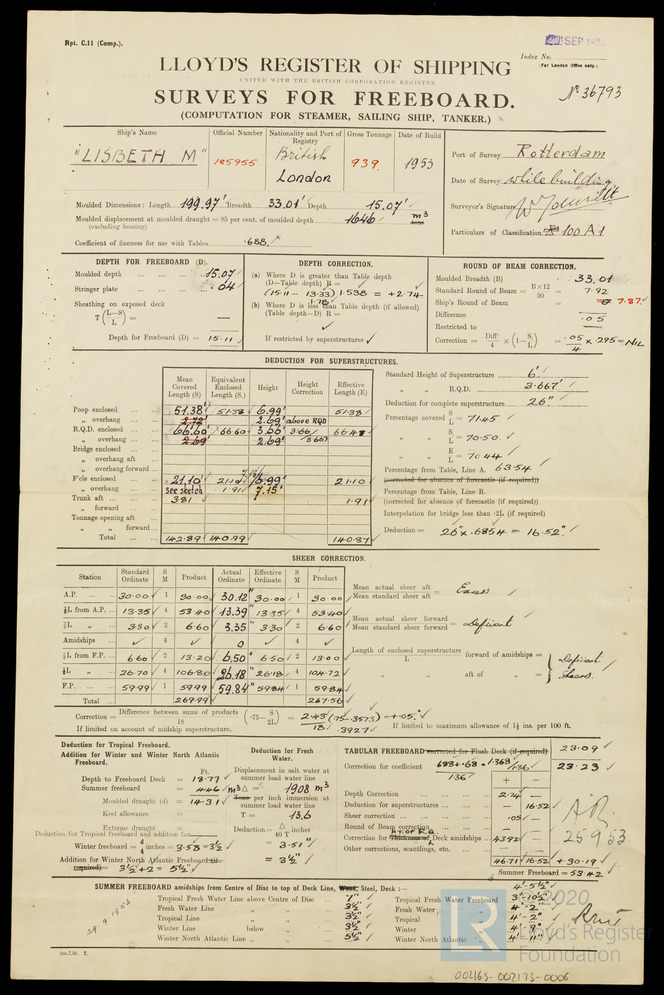 Rpt. C.11 (Comp.).
SEP
Index No.
(For London Office only.)
LLOYD'S REGISTER OF SHIPPING
UNITED WITH THE BRITISH CORPORATION REGISTER
No 36793
SURVEYS FOR FREEBOARD.
(COMPUTATION FOR STEAMER, SAILING SHIP, TANKER.)
Ship's Name Official Number Nationality and Port of Registry Gross Tonnage Date of Build
"LISBETH M" 185955 British London 939. 1953
Port of Survey Rotterdam
Date of Survey while building
Surveyor's Signature
Particulars of Classification 100 A1
Moulded Dimensions: Length 199.97' Breadth 33.01' Depth 15.07'
Moulded displacement at moulded draught = 85 per cent. of moulded depth 1646 m3
(excluding bossing)
Coefficient of fineness for use with Tables .688.
DEPTH FOR FREEBOARD (D).
Moulded depth 15.07
Stringer plate .04
Sheathing on exposed deck
T (L—S/L) = —
Depth for Freeboard (D) = 15.11
DEPTH CORRECTION.
(a) Where D is greater than Table depth
(D—Table depth) R =
(15.11 - 13.33) 1.538 = +2.74
1.78
(b) Where D is less than Table depth (if allowed)
(Table depth—D) R =
If restricted by superstructures
ROUND OF BEAM CORRECTION.
Moulded Breadth (B) 33.01
Standard Round of Beam = B×12/50 = 7.92
Ship's Round of Beam = 7.87
Difference .05
Restricted to
Correction = Diff/4 × (1—S/L) = .05/4 × .295 = NIL
DEDUCTION FOR SUPERSTRUCTURES.
Mean Covered Length (S) Equivalent Enclosed Length (S₁) Height Height Correction Effective Length (E)
Poop enclosed 51.38' 51.38 6.99' 51.38
„ overhang 2.72 2.69' above RQD
R.Q.D. enclosed 66.60' 66.60 3.66' 3.66 66.48
„ overhang 2.69 2.69' 3.667
Bridge enclosed
„ overhang aft
„ overhang forward
F'cle enclosed 21.10 21.10 6.99' 21.10
„ overhang see sketch 1.91 7.15'
Trunk aft 3.81 1.91
„ forward
Tonnage opening aft
„ „ forward
Total 142.89 140.99 140.87
Standard Height of Superstructure 6'
„ „ R.Q.D. 3.667'
Deduction for complete superstructure 26"
Percentage covered S/L = 71.45
„ „ S₁/L = 70.50
„ „ E/L = 70.44
Percentage from Table, Line A. 63.54
(corrected for absence of forecastle (if required))
Percentage from Table, Line B.
(corrected for absence of forecastle (if required))
Interpolation for bridge less than ·2L (if required)
Deduction = 26" × .6354 = 16.52"
SHEER CORRECTION.
Station Standard Ordinate S M Product Actual Ordinate Effective Ordinate S M Product
A.P. 30.00 1 30.00 30.12" 30.00 1 30.00
⅙L from A.P. 13.35 4 53.40 13.39" 13.35 4 53.40
⅓L „ 3.30 2 6.60 3.35" 3.30 2 6.60
Amidships 4 0 4
⅓L from F.P. 6.60 2 13.20 6.50" 6.50 2 13.00
⅙L „ 26.70 4 106.80 26.18" 26.18 4 104.72
F.P. 59.99 1 59.99 59.84" 59.84 1 59.84
Total 269.99 267.56
Mean actual sheer aft / Mean standard sheer aft = Excess
Mean actual sheer forward / Mean standard sheer forward = Deficient
Length of enclosed superstructure / L forward of amidships =
„ aft of „ =
Deficient sheer.
Correction = Difference between sums of products / 18 (·75—S/2L) = 2.43/18 (.75-.3573) = +.05
.3927
If limited on account of midship superstructure.
If limited to maximum allowance of 1½ ins. per 100 ft.
Deduction for Tropical Freeboard.
Addition for Winter and Winter North Atlantic Freeboard.
Ft.
Depth to Freeboard Deck = 18.77
Summer freeboard = 4.46
Moulded draught (d) = 14.31
Keel allowance =
Extreme draught =
Deduction for Tropical freeboard and addition for
Winter freeboard = d/4 inches = 3.58 = 3½"
Addition for Winter North Atlantic Freeboard (if required) = 3½ + 2 = 5½"
Deduction for Fresh Water.
Displacement in salt water at summer load water line
Δ = 1908 m3
m3 per inch immersion at summer load water line
T = 13.6
Deduction = Δ/40 T inches
= 3.51"
= 3½"
TABULAR FREEBOARD corrected for Flush Deck (if required) 23.09
Correction for coefficient .688 + .68 / 1.36 = 1.368/1.36 23.23
+ —
Depth Correction 2.74 —
Deduction for superstructures — 16.52
Sheer correction .05 —
Round of Beam correction — —
Correction for Ht. of R.Q. Deck amidships 43.92 —
Other corrections, scantlings, etc. — —
46.71 16.52 + 30.19
Summer Freeboard = 53.42
25 9 53
SUMMER FREEBOARD amidships from Centre of Disc to top of Deck Line, Wood, Steel, Deck :— 4'-5½"
Tropical Fresh Water Line above Centre of Disc 7" Tropical Fresh Water Freeboard 3'-10½"
Fresh Water Line „ „ 3½" Fresh Water „ 4'-2"
Tropical Line „ „ 3½" Tropical „ 4'-2"
Winter Line below „ 3½" Winter „ 4'-9"
Winter North Atlantic Line „ „ 5½" Winter North Atlantic „ 4'-11"
29.9.1953
© 2020
LR
Lloyd's Register
Foundation
2m.7.50. T.
002165-002173-0006